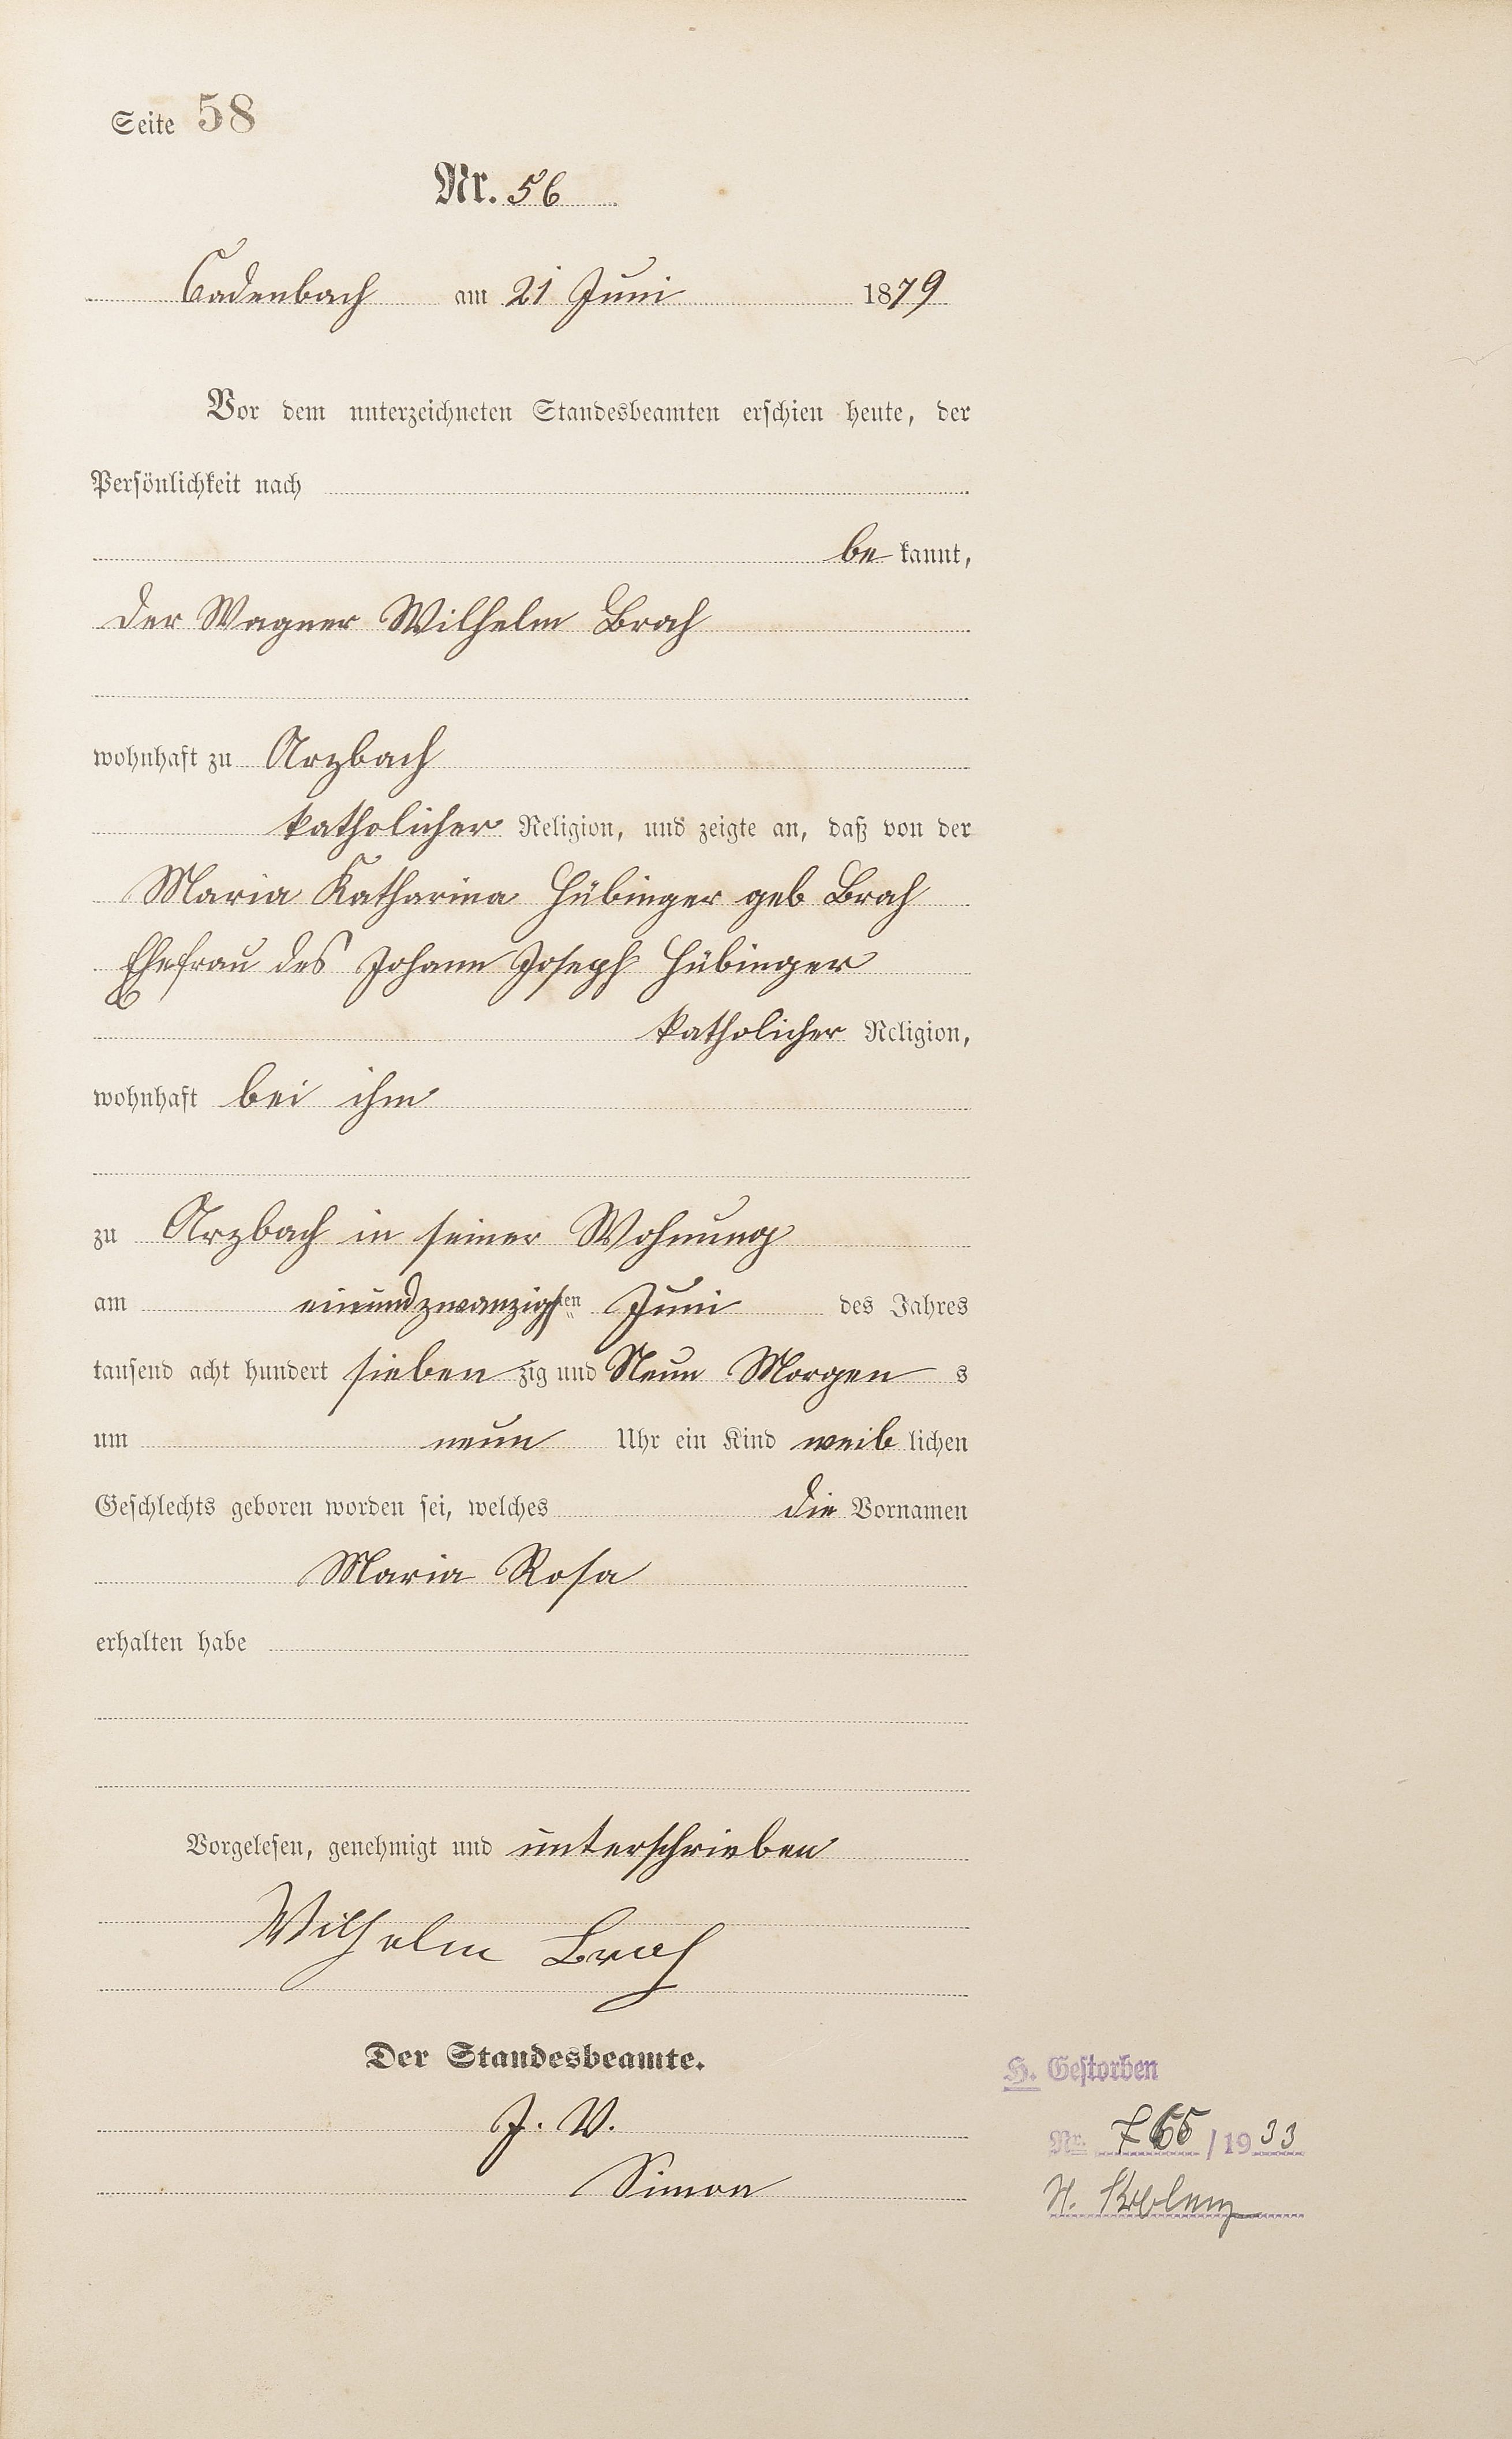 Seite 58
Nr. 56
Cadenbach am 21 Juni 1879
Vor dem unterzeichneten Standesbeamten erschien heute, der
Persönlichkeit nach
be kannt,
der Wagner Wilhelm Brach
wohnhaft zu Arzbach
katholicher Religion, und zeigte an, daß von der
Maria Katharina Hübinger geb Brach
Ehefrau des Johann Joseph Hübinger
katholicher Religion,
wohnhaft bei ihm
zu Arzbach in seiner Wohnung
am einundzwanzigsten Juni des Jahres
tausend acht hundert sieben zig und Neun Morgen s
um neun Uhr ein Kind weib lichen
Geschlechts geboren worden sei, welches die Vornamen
Maria Rosa
erhalten habe
Vorgelesen, genehmigt und unterschrieben
Wilhelm Brach
Der Standesbeamte.
J. V.
Simon
H. Gestorben
Nr. 765 / 1933
St. Koblenz